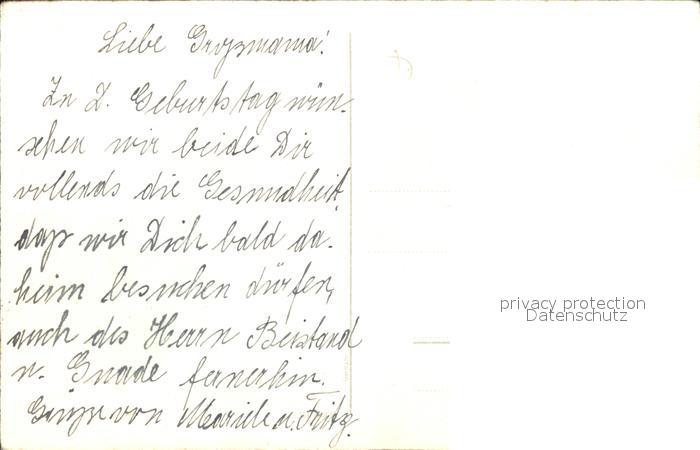 Liebe Groszmama!
Zu D. Geburtstag wün-
schen wir beide Dir
vollends die Gesundheit,
dasz wir Dich bald da-
heim besuchen dürfen,
auch des Herrn Beistand
u. Gnade fernerhin.
Grüsze von Mariele u. Fritz.
privacy protection
Datenschutz